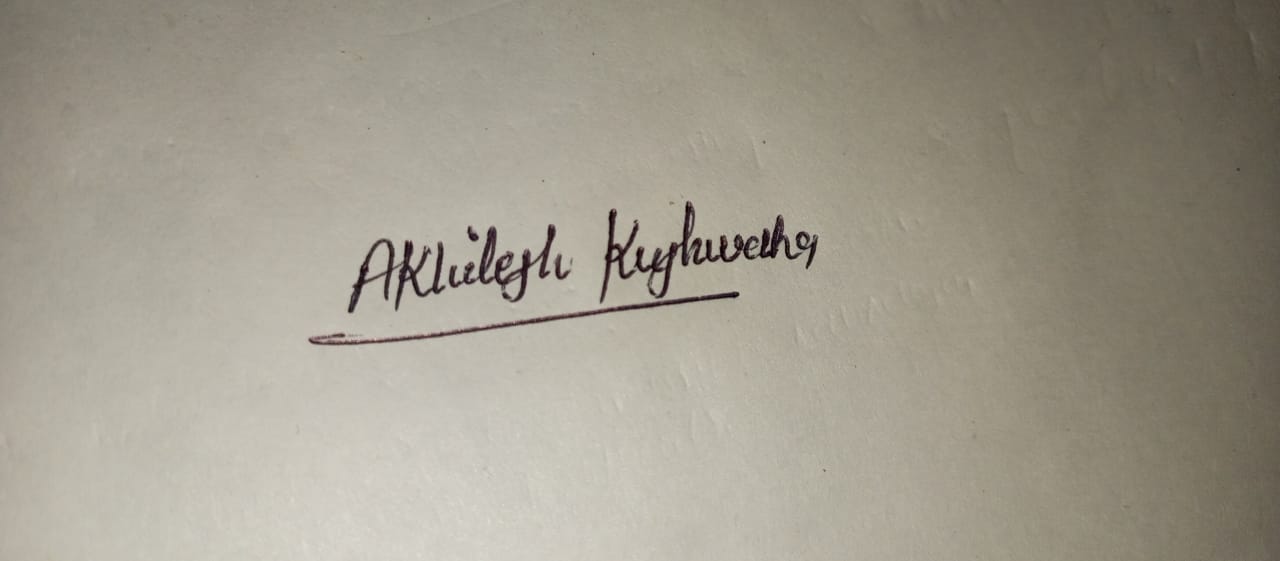 Akhilesh Kushwaha